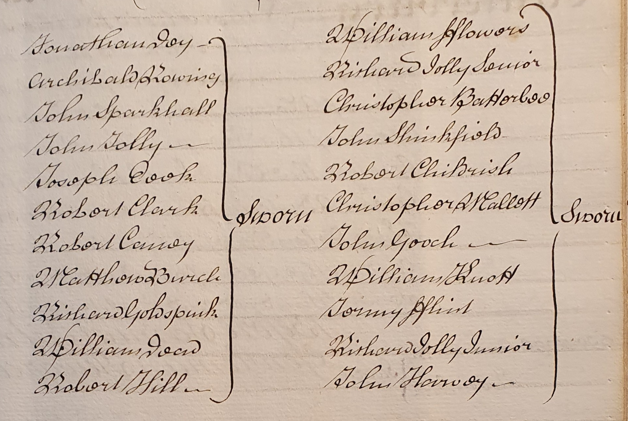 Jonathan Dey
Archibald Rowing
John Sparkhall
John Jolly
Joseph Cook
Robert Clark
Robert Caney
Matthew Burch
Richard Goldspink
William Dead
Robert Hill
Sworn
William fflowers
Richard Jolly Senior
Christopher Batterbee
John Shinkfield
Robert
Christopher Mallett
John Gooch
William Knott
Jermy fflint
Richard Jolly Junior
John Harvey
Sworn